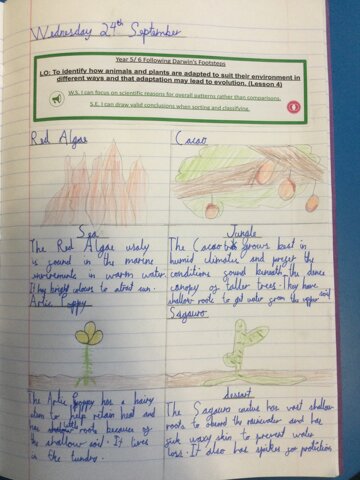 Wednesday 24th September
Year 5/ 6 Following Darwin's Footsteps
LO: To identify how animals and plants are adapted to suit their environment in
different ways and that adaptation may lead to evolution. (Lesson 4)
W.S. I can focus on scientific reasons for overall patterns rather than comparisons.
S.E. I can draw valid conclusions when sorting and classifying.
Red Algae
Sea
The Red Algae usaly
is found in the marine
invirements in warm water.
It has bright colours to attract sun.
Cacao
Jungle
The Cacao grows best in
humid climatic and prefer the
conditions found beneath the dence
canopy of taller trees. They have
shallow roots to get water from the upper soil
Artic Poppy
The Artic Poppy has a hairy
stem to help retain heat and
has roots because of
the shallow soil. It lives
in the tundra.
Saguaro
dessert
The Saguaro cactus has vast shallow
roots to absorb the rainwater and has
thick waxy skin to prevent water
loss. It also has spikes for protection